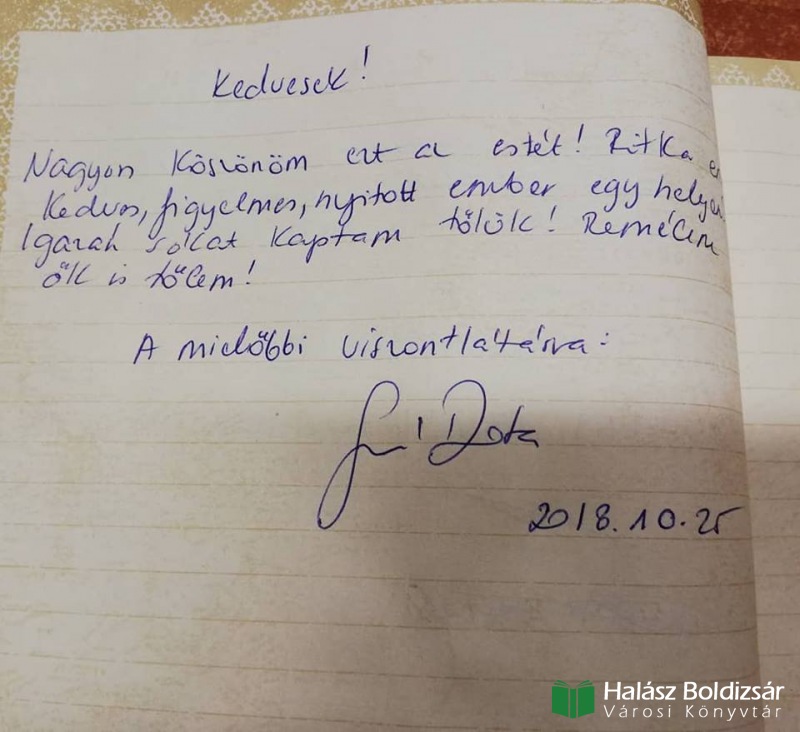 Kedvesek!
Nagyon Köszönöm ezt az estét! Ritka e
kedves, figyelmes, nyitott ember egy helyen
Igazán sokat Kaptam tőlük! Remélem
ők is tőlem!
A mielőbbi viszontlátásra:
Dóra
2018.10.25
Halász Boldizsár
Városi Könyvtár